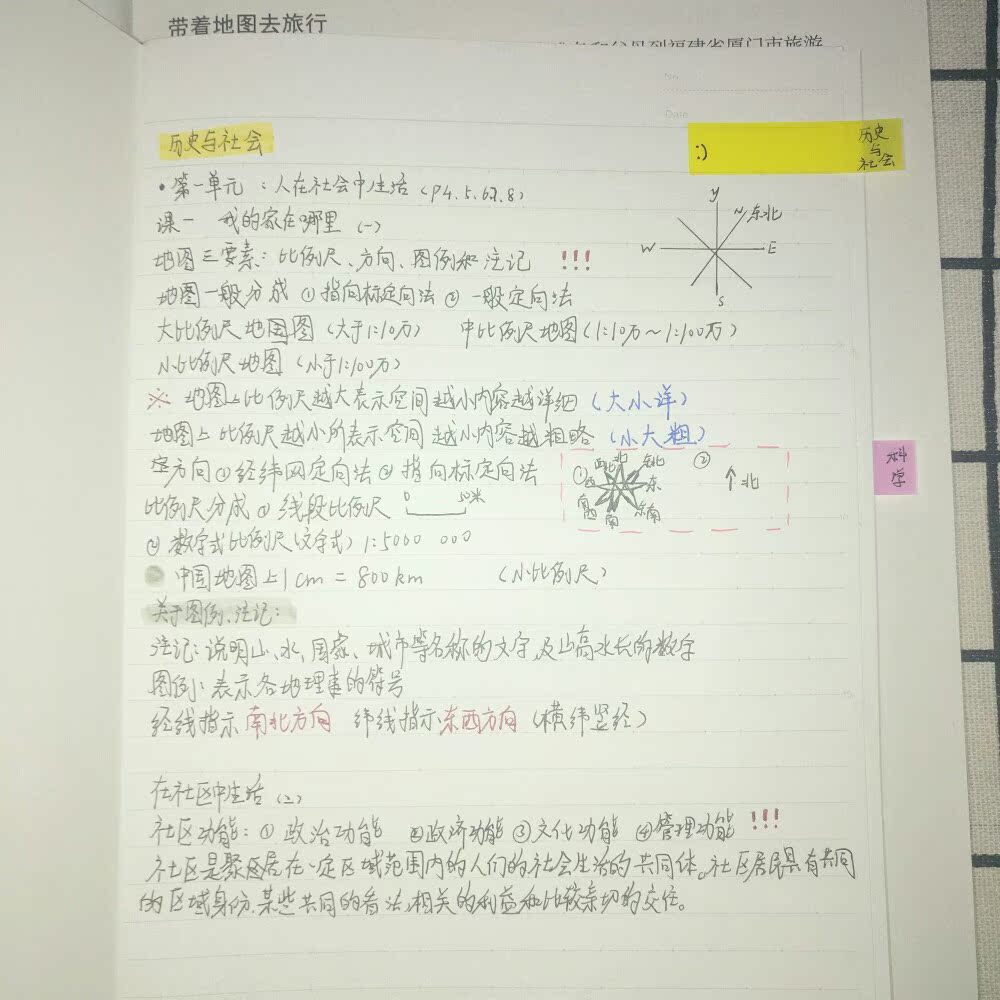 带着地图去旅行
和父母到福建省厦门市旅游
No.
Date
历史与社会
:)
历史
与
社会
•第一单元：人在社会中生活（P4.5.6.7.8）
课一 我的家在哪里（一）
地图三要素：比例尺、方向、图例和注记 !!!
y
N 东北
W
E
S
地图一般分成 ①指向标定向法 ② 一般定向法
大比例尺地图（大于1:10万） 中比例尺地图（1:10万～1:100万）
小比例尺地图（小于1:100万）
※ 地图上比例尺越大表示空间越小内容越详细（大小详）
地图上比例尺越小所表示空间越小内容越粗略（小大粗）
定方向①经纬网定向法②指向标定向法
① 西北 北 东北
西 东
西南 南 东南
② ↑北
科
学
比例尺分成①线段比例尺 0 50米
②数字式比例尺（文字式）1:5000 000
中国地图上1cm = 800km （小比例尺）
关于图例、注记：
注记：说明山、水、国家、城市等名称的文字，及山高水长的数字
图例：表示各地理事的符号
经线指示南北方向 纬线指示东西方向（横纬竖经）
在社区中生活（二）
社区功能：① 政治功能 ②经济功能 ③文化功能 ④管理功能 !!!
社区是聚居在一定区域范围内的人们的社会生活的共同体。社区居民具有共同
的区域身份、某些共同的看法，相关的利益和比较亲切的交往。